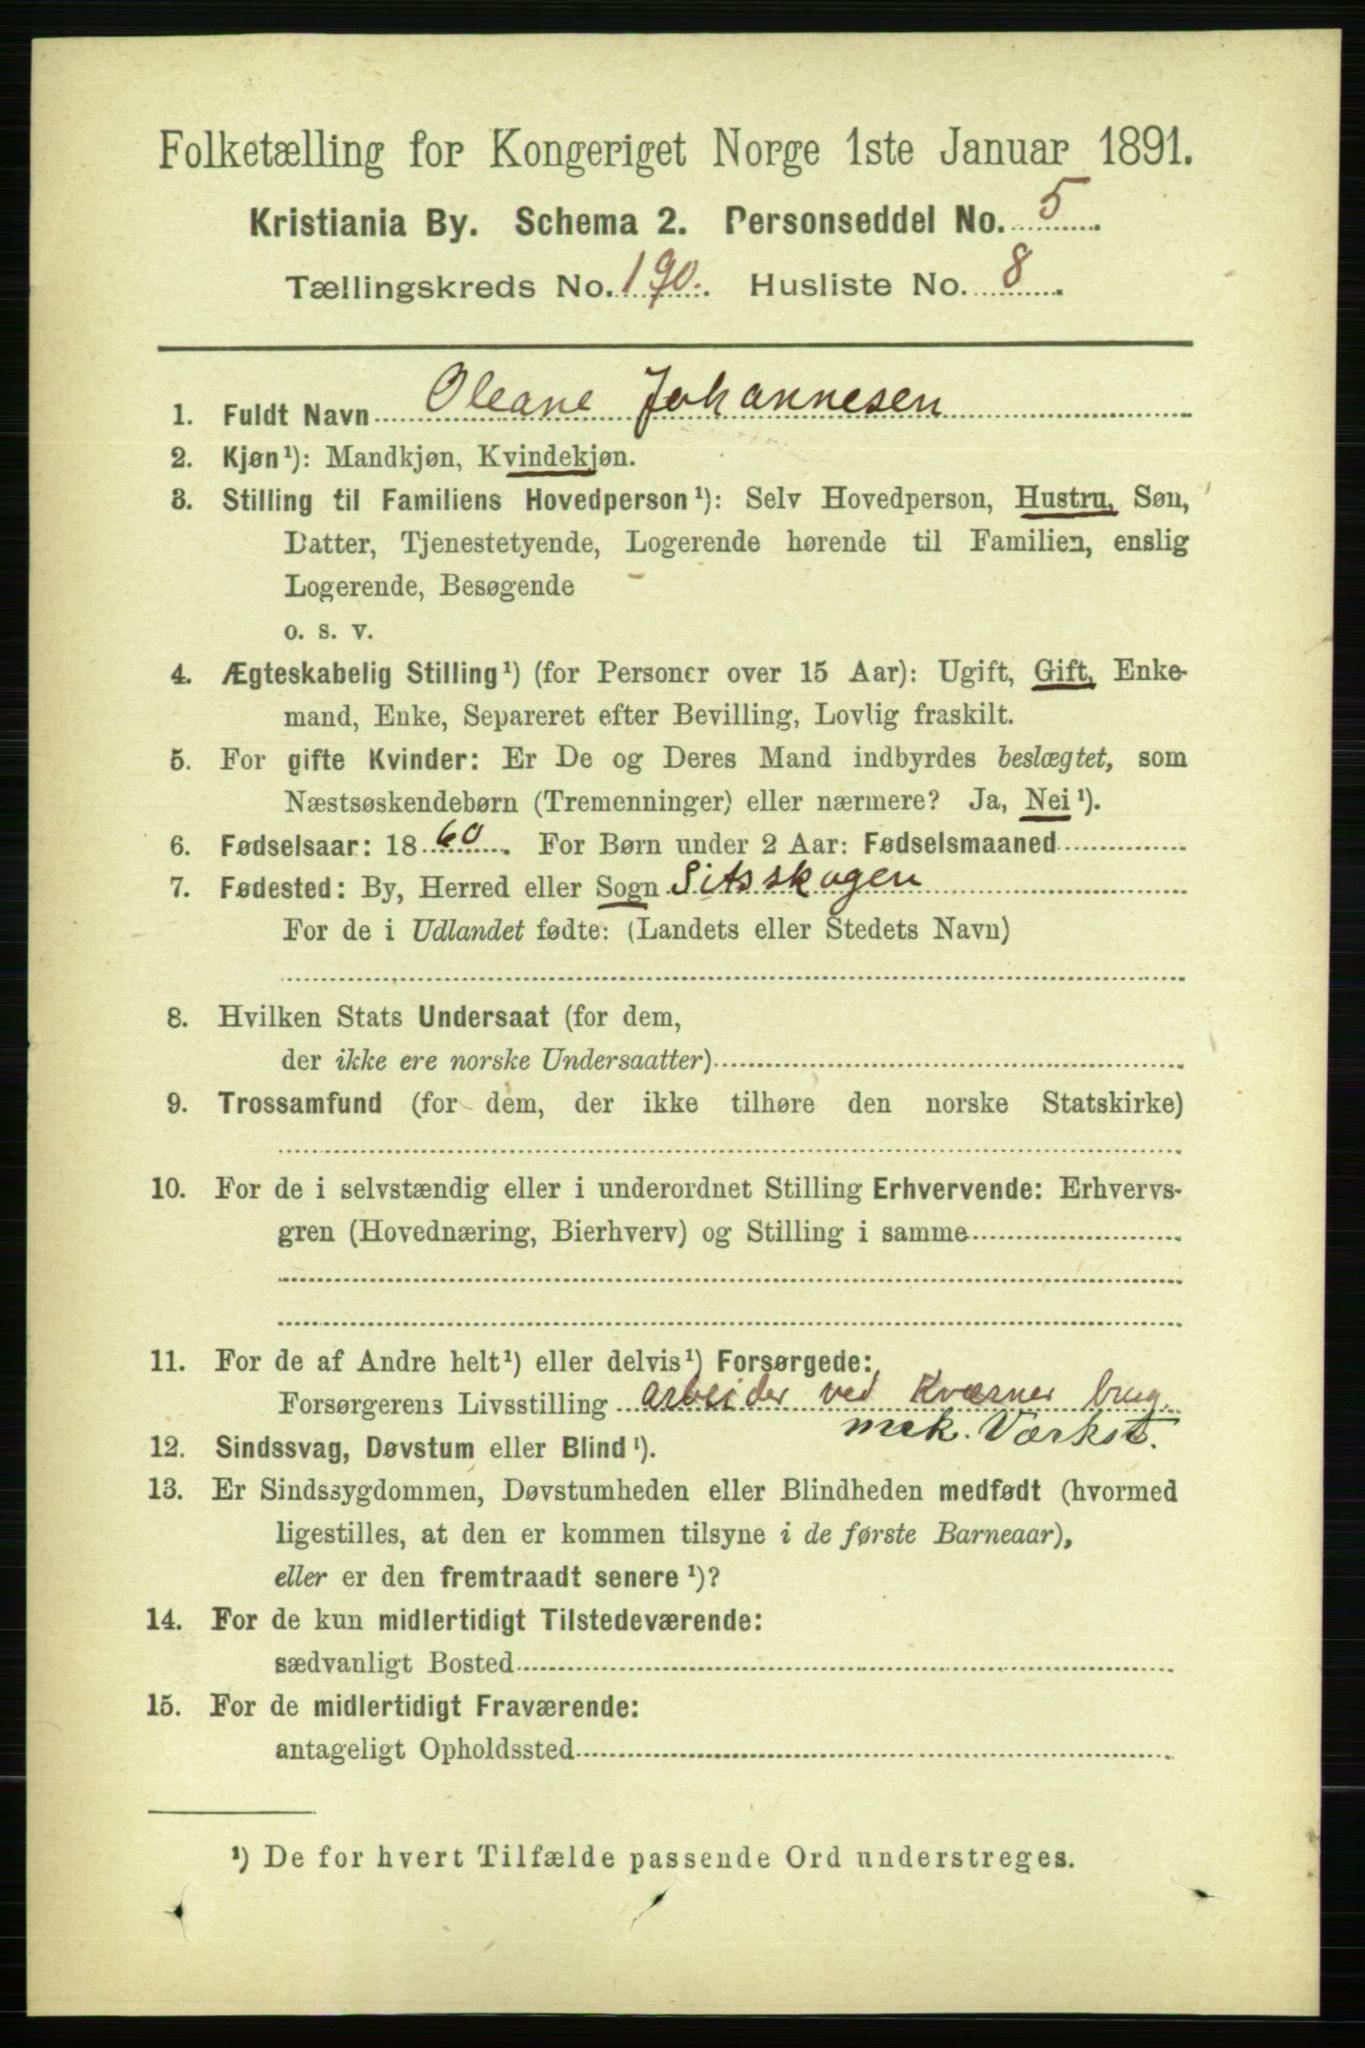 Folketælling for Kongeriget Norge 1ste Januar 1891.
Kristiania By. Schema 2. Personseddel No. 5.
Tællingskreds No. 190. Husliste No. 8.
1. Fuldt Navn Oleane Johannesen
2. Kjøn¹): Mandkjøn, Kvindekjøn.
3. Stilling til Familiens Hovedperson¹): Selv Hovedperson, Hustru, Søn,
Datter, Tjenestetyende, Logerende hørende til Familien, enslig
Logerende, Besøgende
o. s. v.
4. Ægteskabelig Stilling¹) (for Personer over 15 Aar): Ugift, Gift, Enke-
mand, Enke, Separeret efter Bevilling, Lovlig fraskilt.
5. For gifte Kvinder: Er De og Deres Mand indbyrdes beslægtet, som
Næstsøskendebørn (Tremenninger) eller nærmere? Ja, Nei¹).
6. Fødselsaar: 1860. For Børn under 2 Aar: Fødselsmaaned
7. Fødested: By, Herred eller Sogn Sitsskogen
For de i Udlandet fødte: (Landets eller Stedets Navn)
8. Hvilken Stats Undersaat (for dem,
der ikke ere norske Undersaatter)
9. Trossamfund (for dem, der ikke tilhøre den norske Statskirke)
10. For de i selvstændig eller i underordnet Stilling Erhvervende: Erhvervs-
gren (Hovednæring, Bierhverv) og Stilling i samme
11. For de af Andre helt¹) eller delvis¹) Forsørgede:
Forsørgerens Livsstilling arbeider ved Kværner brug.
mek. Værkst.
12. Sindssvag, Døvstum eller Blind¹).
13. Er Sindssygdommen, Døvstumheden eller Blindheden medfødt (hvormed
ligestilles, at den er kommen tilsyne i de første Barneaar),
eller er den fremtraadt senere¹)?
14. For de kun midlertidigt Tilstedeværende:
sædvanligt Bosted
15. For de midlertidigt Fraværende:
antageligt Opholdssted
¹) De for hvert Tilfælde passende Ord understreges.